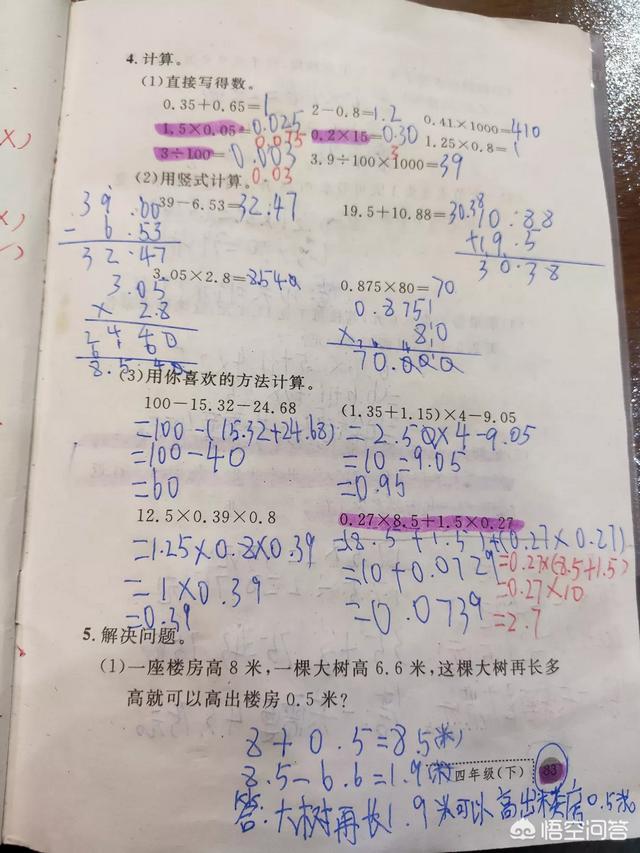 4. 计算。
(1)直接写得数。
0.35+0.65=1 2-0.8=1.2 0.41×1000=410
1.5×0.05=0.025 0.2×15=0.30 1.25×0.8=1
0.075 3
3÷100=0.003 3.9÷100×1000=39
0.03
(2)用竖式计算。
39-6.53=32.47 19.5+10.88=30.38
39.00
- 6.53
32.47
10.88
+19.5
30.38
3.05×2.8=8.540 0.875×80=70
3.05
× 2.8
2440
610
8.540
0.875
× 80
70.000
(3)用你喜欢的方法计算。
100-15.32-24.68 (1.35+1.15)×4-9.05
=100-(15.32+24.68) =2.50×4-9.05
=100-40 =10-9.05
=60 =0.95
12.5×0.39×0.8 0.27×8.5+1.5×0.27
=1.25×0.8×0.39 =(8.5+1.5)+(0.27×0.27)
=1×0.39 =10+0.0729
=0.39 =0.0739
=0.27×(8.5+1.5)
=0.27×10
=2.7
5. 解决问题。
(1)一座楼房高8米,一棵大树高6.6米,这棵大树再长多
高就可以高出楼房0.5米?
8+0.5=8.5(米)
8.5-6.6=1.9(米)
答:大树再长1.9米可以高出楼房0.5米
四年级(下) 83
悟空问答